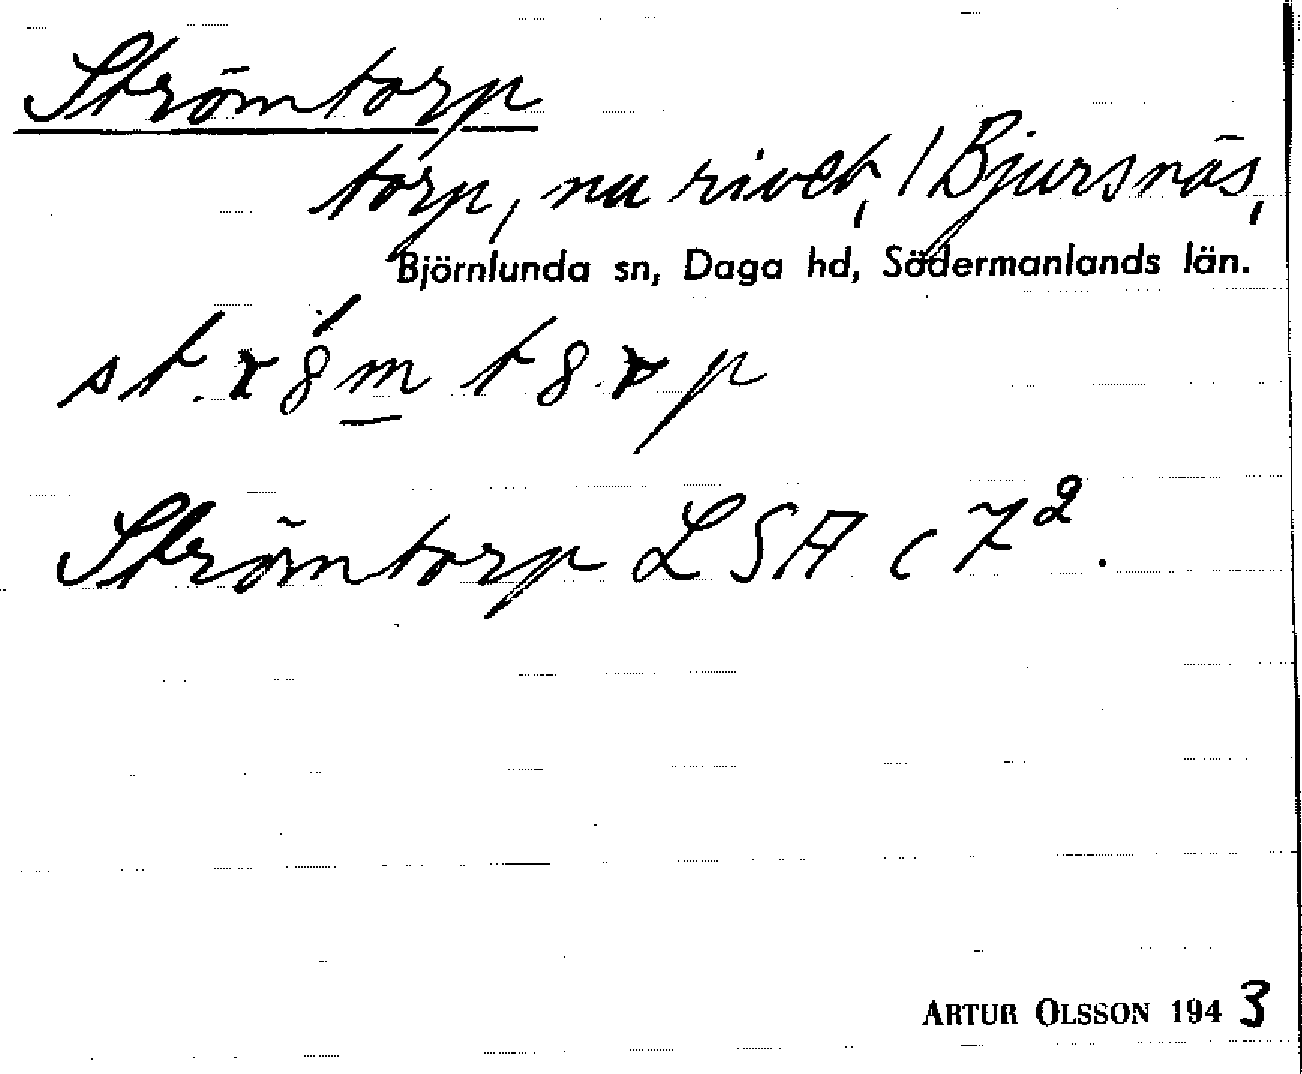 Strömtorp
torp, nu rivet, / Bjursnäs,
Björnlunda sn, Daga hd, Södermanlands län.
Strömtorp LSA c 7².
ARTUR OLSSON 1943